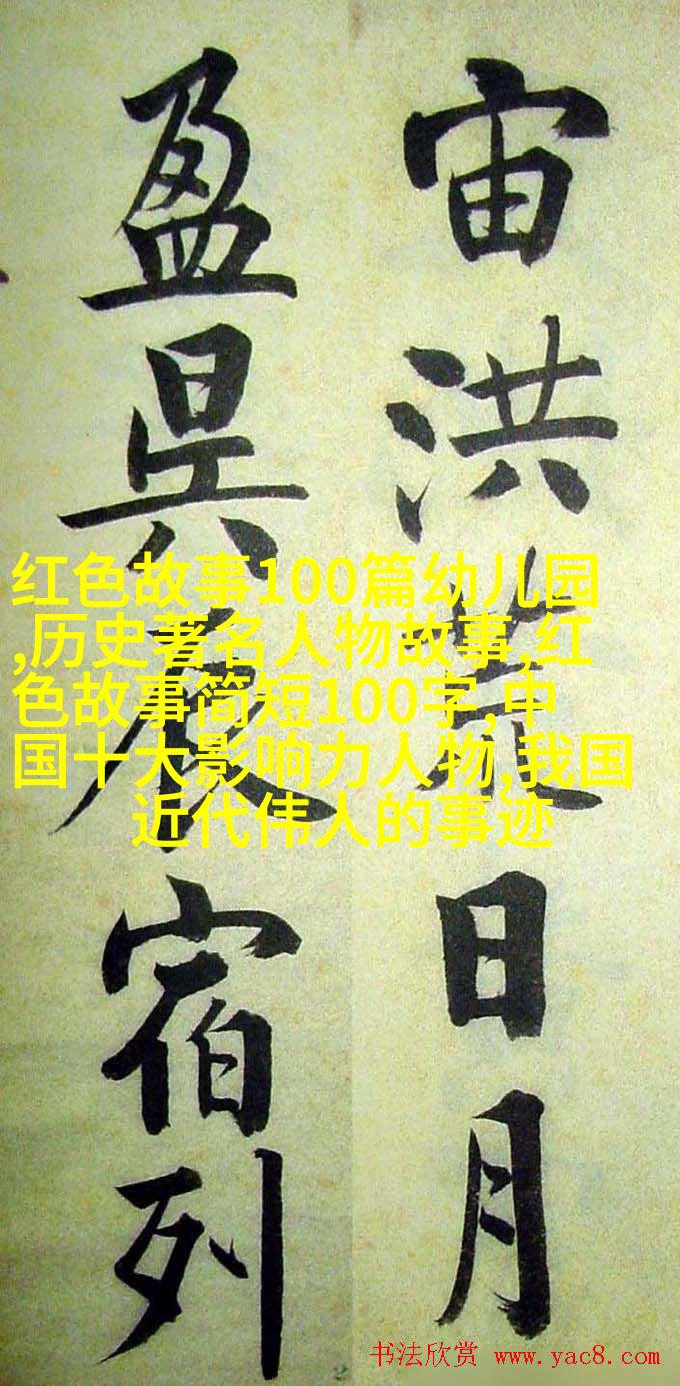 宙洪荒日月
盈昃辰宿列
红色故事100篇幼儿园
,历史著名人物故事,红
色故事简短100字,中
国十大影响力人物,我国
近代伟人的事迹
书法欣赏 www.yac8.com